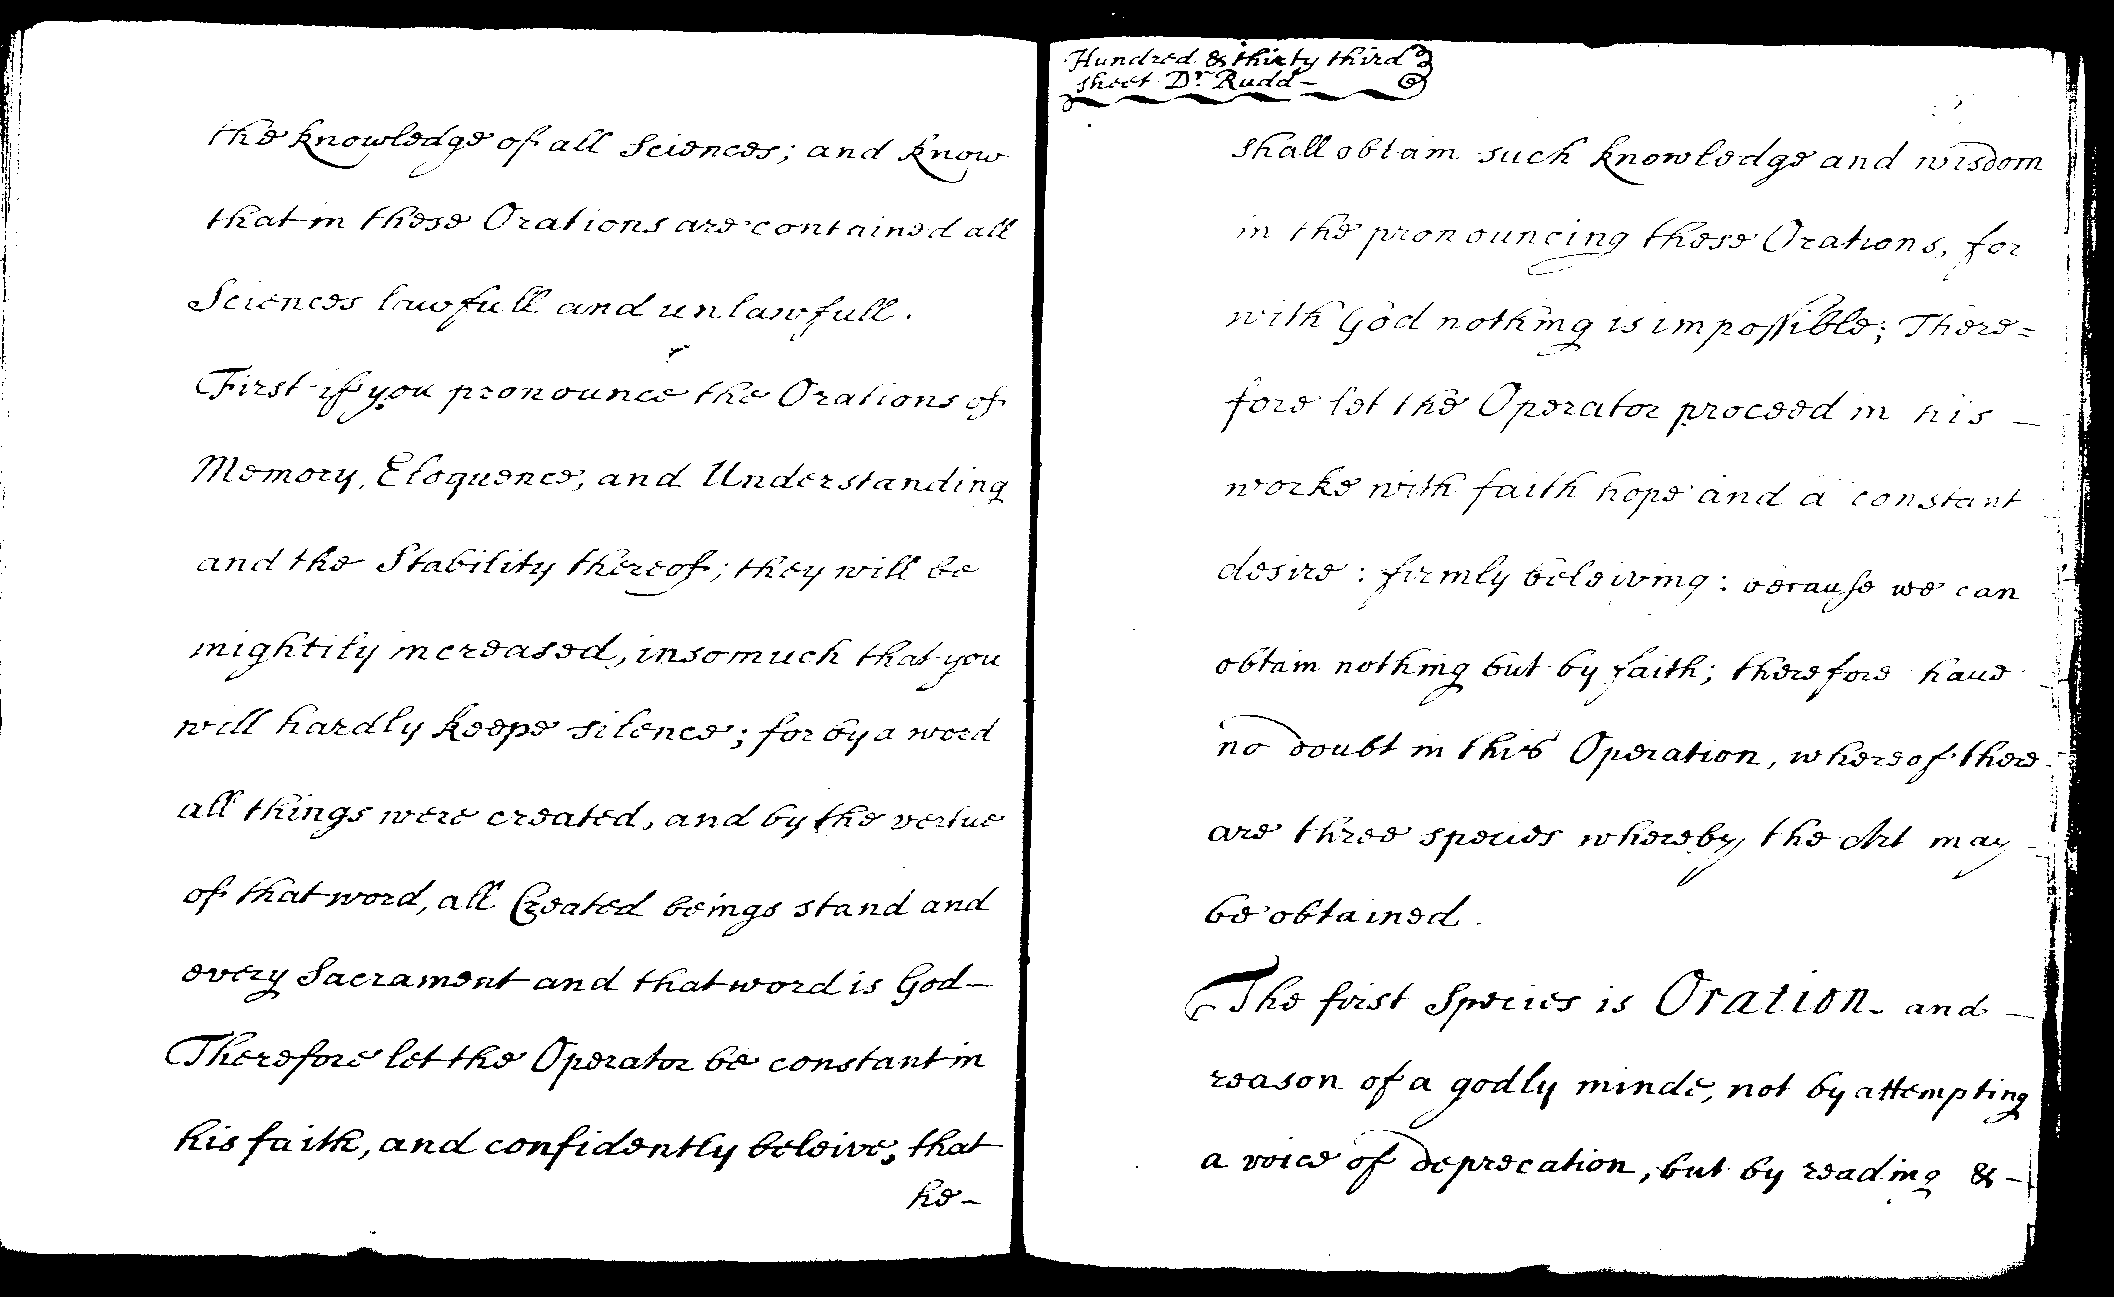 the knowledge of all Sciences; and know
that in these Orations are contained all
Sciences lawfull and unlawfull.
First if you pronounce the Orations of
Memory, Eloquence, and Understanding
and the Stability thereof; they will be
mightily increased, insomuch that you
will hardly keepe silence; for by a word
all things were created, and by the vertue
of that word, all Created beings stand and
every Sacrament and that word is God–
Therefore let the Operator be constant in
his faith, and confidently beleive, that
he–
Hundred & thirty third
sheet Dr. Rudd–
shall obtain such knowledge and wisdom
in the pronouncing these Orations, for
with God nothing is impossible; There=
fore let the Operator proceed in his –
worke with faith hope and a constant
desire: firmly beleiving: because we can
obtain nothing but by faith; therefore haue
no doubt in this Operation, whereof there
are three species whereby the Art may
be obtained.
The first Species is Oration. and –
reason of a godly minde, not by attempting
a voice of deprecation, but by reading & –